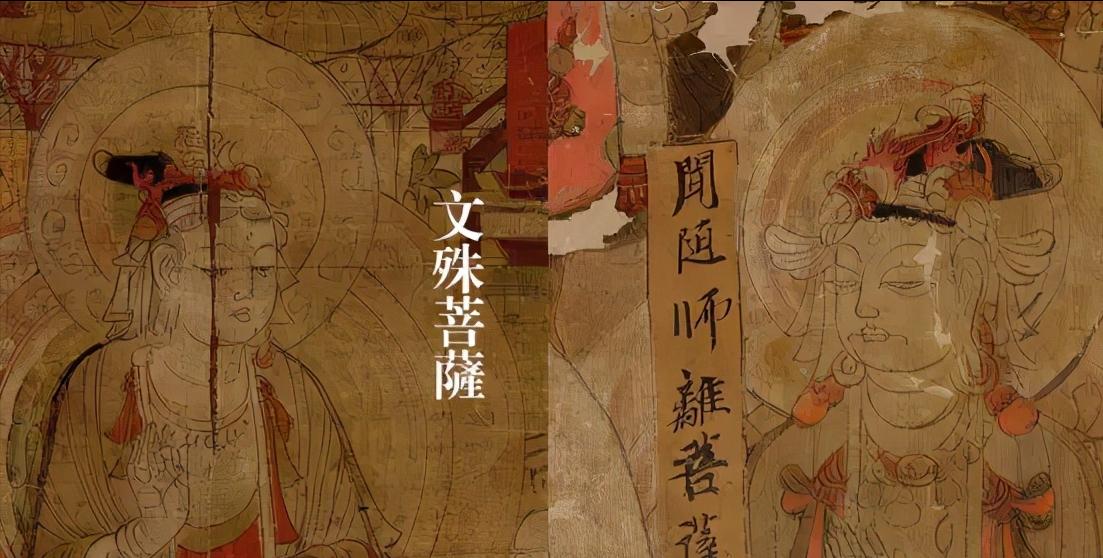 文殊菩薩
聞随师離菩薩